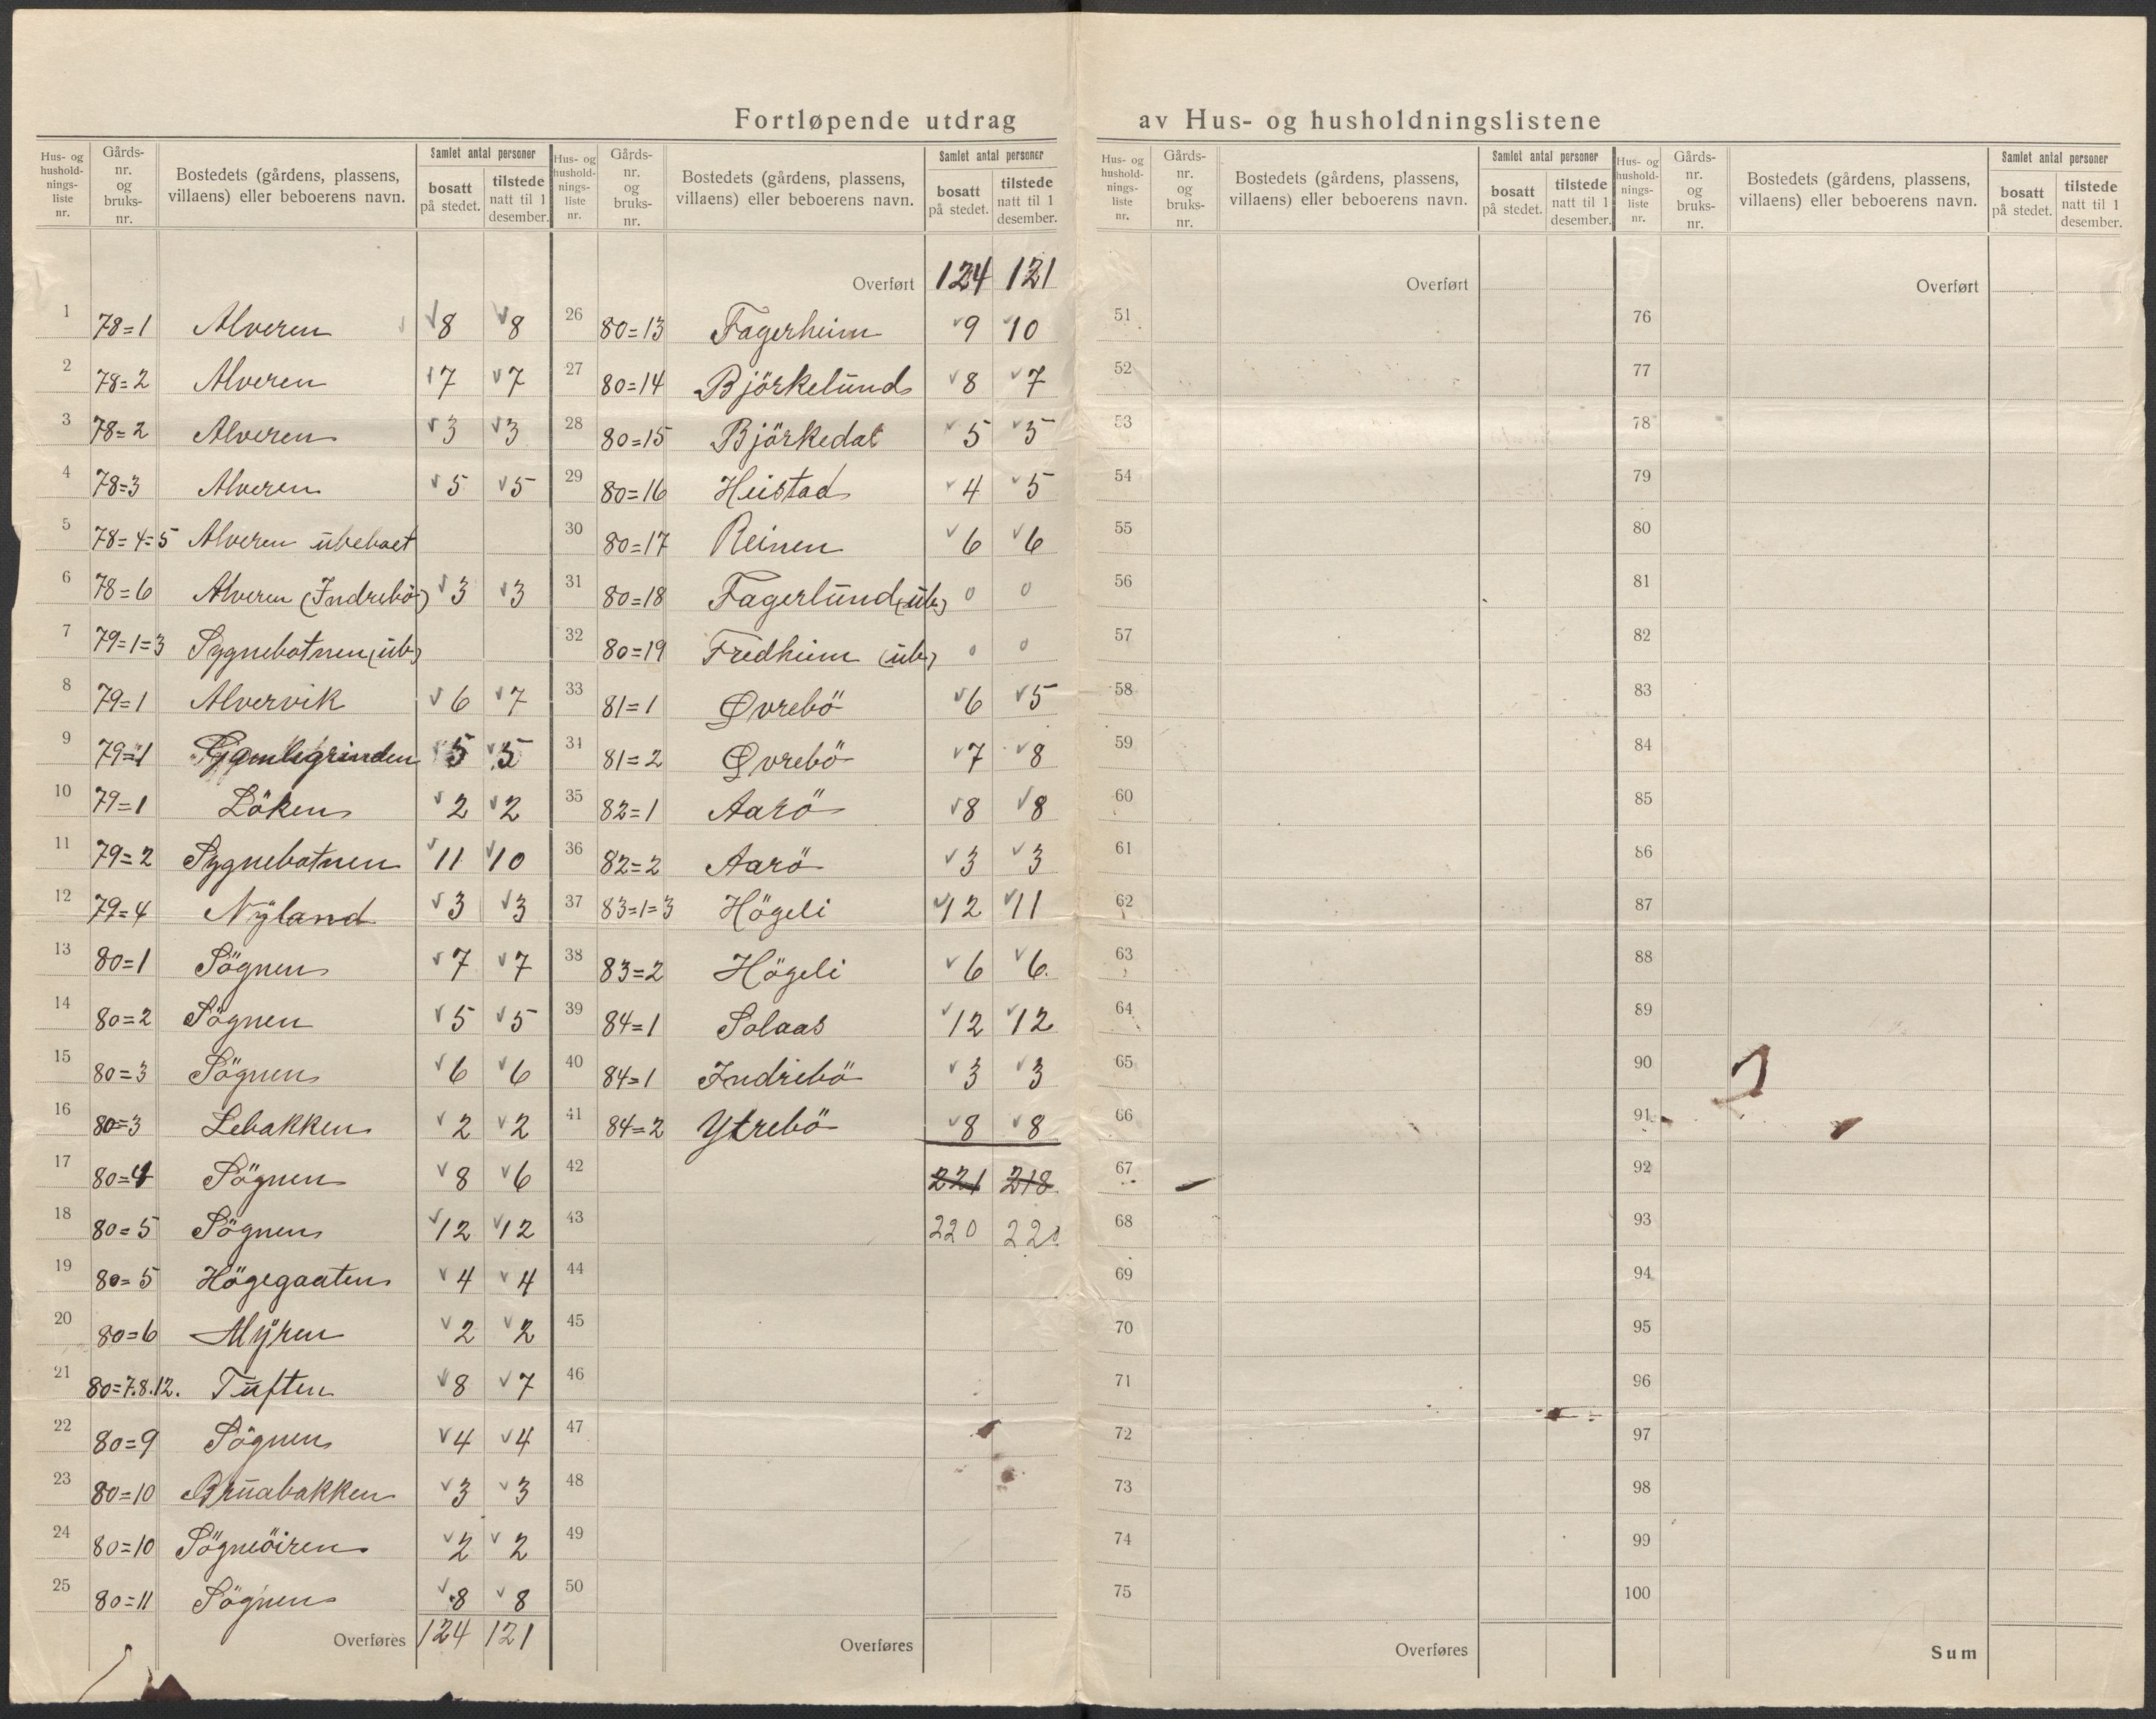 Fortløpende utdrag av Hus- og husholdningslistene
Hus- og husholdningsliste nr. | Gårdsnr. og bruksnr. | Bostedets (gårdens, plassens, villaens) eller beboerens navn. | Samlet antal personer | bosatt på stedet. | tilstede natt til 1 desember.
1 78=1 Alveren 8 8
2 78=2 Alveren 7 7
3 78=2 Alveren 3 3
4 78=3 Alveren 5 5
5 78=4=5 Alveren ubeboet
6 78=6 Alveren (Indrebö) 3 3
7 79=1=3 Sygnebotnen (ub.)
8 79=1 Alvervik 6 7
9 79=1 Gamlegrinden 5 5
10 79=1 Löken 2 2
11 79=2 Sygnebotnen 11 10
12 79=4 Nyland 3 3
13 80=1 Sögnen 7 7
14 80=2 Sögnen 5 5
15 80=3 Sögnen 6 6
16 80=3 Lebakken 2 2
17 80=4 Sögnen 8 6
18 80=5 Sögnen 12 12
19 80=5 Högegaaten 4 4
20 80=6 Myren 2 2
21 80=7.8.12. Tuften 8 7
22 80=9 Sögnen 4 4
23 80=10 Bruabakken 3 3
24 80=10 Sögneöiren 2 2
25 80=11 Sögnen 8 8
Overføres 124 121
Hus- og husholdningsliste nr. | Gårdsnr. og bruksnr. | Bostedets (gårdens, plassens, villaens) eller beboerens navn. | Samlet antal personer | bosatt på stedet. | tilstede natt til 1 desember.
Overført 124 121
26 80=13 Fagerheim 9 10
27 80=14 Björkelund 8 7
28 80=15 Björkedal 5 5
29 80=16 Heistad 4 5
30 80=17 Reinen 6 6
31 80=18 Fagerlund (ub.) 0 0
32 80=19 Fredheim (ub.) 0 0
33 81=1 Øvrebö 6 5
34 81=2 Øvrebö 7 8
35 82=1 Aarö 8 8
36 82=2 Aarö 3 3
37 83=1=3 Högeli 12 11
38 83=2 Högeli 6 6
39 84=1 Solaas 12 12
40 84=1 Indrebö 3 3
41 84=2 Ytrebö 8 8
42 221 218
43 220 220
44
45
46
47
48
49
50
Overføres
Hus- og husholdningsliste nr. | Gårdsnr. og bruksnr. | Bostedets (gårdens, plassens, villaens) eller beboerens navn. | Samlet antal personer | bosatt på stedet. | tilstede natt til 1 desember.
Overført
51
52
53
54
55
56
57
58
59
60
61
62
63
64
65
66
67
68
69
70
71
72
73
74
75
Overføres
Hus- og husholdningsliste nr. | Gårdsnr. og bruksnr. | Bostedets (gårdens, plassens, villaens) eller beboerens navn. | Samlet antal personer | bosatt på stedet. | tilstede natt til 1 desember.
Overført
76
77
78
79
80
81
82
83
84
85
86
87
88
89
90
91
92
93
94
95
96
97
98
99
100
Sum